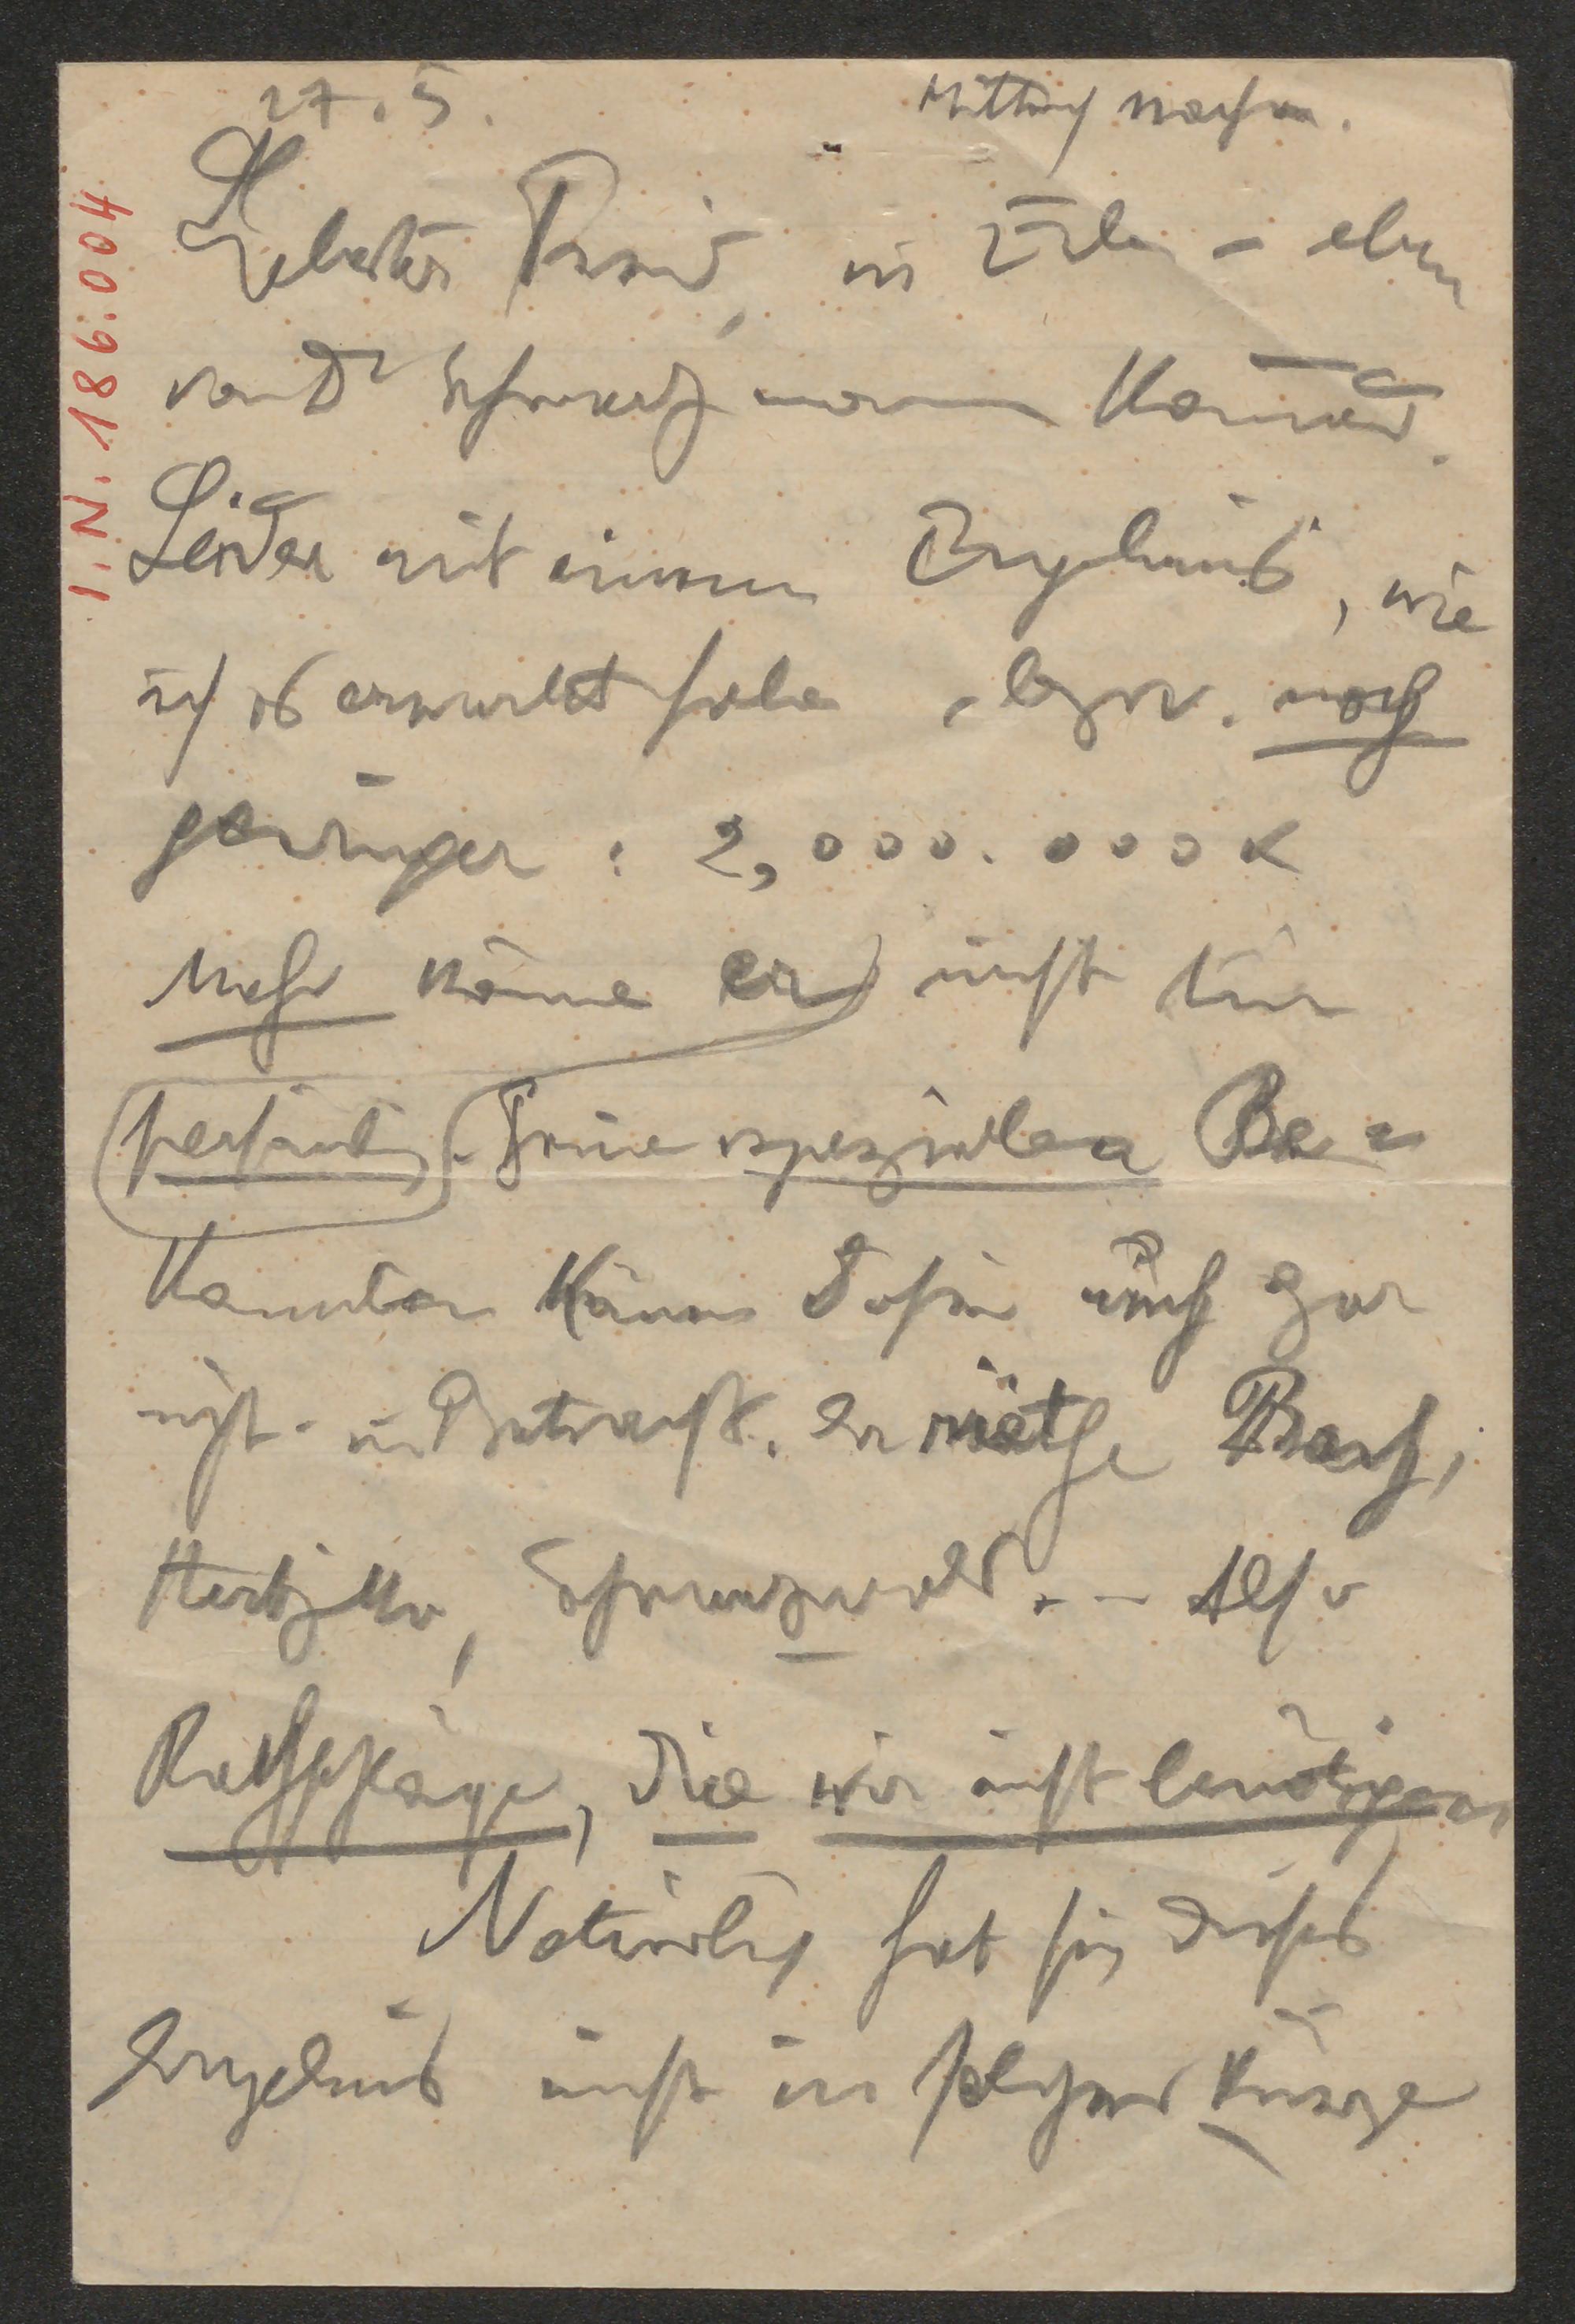 27.5. Mittwoch Nachm.
Liebster Freund, in Eile – eben
von Dr Schwarzmann kommend.
Leider mit einem Ergebnis, wie
ich es erwartet habe, bezw. noch
geringer: 2,000.000 K
Mehr könne er nicht tun
persönlich. Seine speziellen Be=
kannten kämen dafür auch gar
nicht in Betracht. Er riethe Bach,
Hertzka, Schwarzwald. – Also
Rathschläge, die wir nicht benötigen
Natürlich hat sich dieses
Ergebnis nicht in solcher Kürze
I.N. 186.004